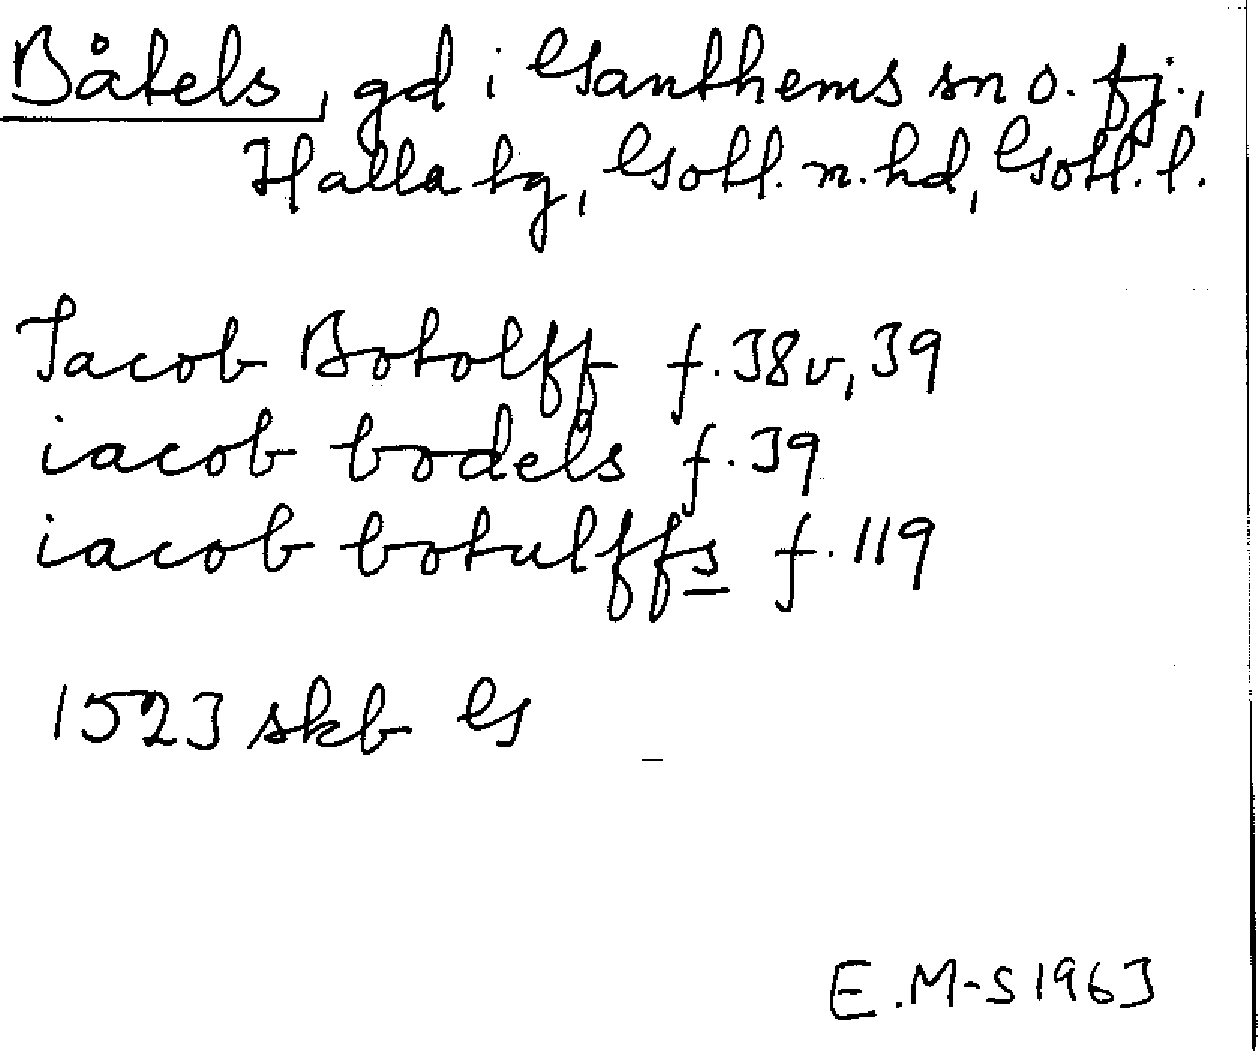 Båtels, gd i Ganthems sn o. fj.,
Halla tg, Gotl. n. hd, Gotl. l.
Jacob Botolff f. 38v, 39
iacob bodels f. 39
iacob botulffs f. 119
1523 skb G
E.M-S 1963